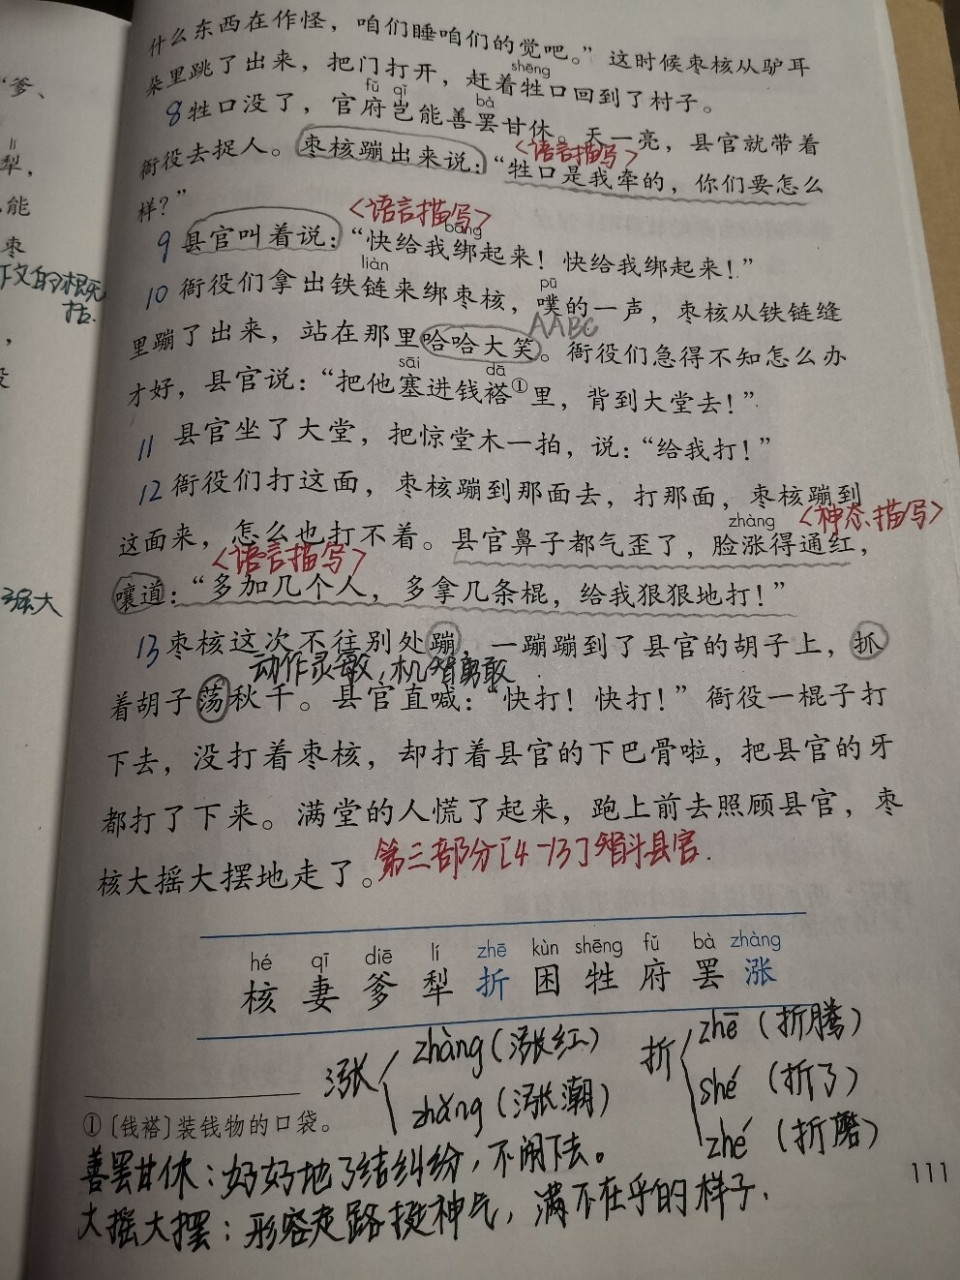 什么东西在作怪，咱们睡咱们的觉吧。”这时候枣核从驴耳
朵里跳了出来，把门打开，赶着牲口回到了村子。
shēng
fǔ qǐ bà
8 牲口没了，官府岂能善罢甘休。天一亮，县官就带着
衙役去捉人。枣核蹦出来说：“牲口是我牵的，你们要怎么
<语言描写>
样？”
<语言描写>
9 县官叫着说：“快给我绑起来！快给我绑起来！”
bǎng
liàn pū
10 衙役们拿出铁链来绑枣核，噗的一声，枣核从铁链缝
AABC
里蹦了出来，站在那里哈哈大笑。衙役们急得不知怎么办
sāi dā
才好，县官说：“把他塞进钱褡①里，背到大堂去！”
11 县官坐了大堂，把惊堂木一拍，说：“给我打！”
12 衙役们打这面，枣核蹦到那面去，打那面，枣核蹦到
zhàng <神态描写>
这面来，怎么也打不着。县官鼻子都气歪了，脸涨得通红，
<语言描写>
嚷道：“多加几个人，多拿几条棍，给我狠狠地打！”
13 枣核这次不往别处蹦，一蹦蹦到了县官的胡子上，抓
动作灵敏，机智勇敢
着胡子荡秋千。县官直喊：“快打！快打！”衙役一棍子打
下去，没打着枣核，却打着县官的下巴骨啦，把县官的牙
都打了下来。满堂的人慌了起来，跑上前去照顾县官，枣
核大摇大摆地走了。第三部分[4-13]智斗县官.
hé qī diē lí zhē kùn shēng fǔ bà zhàng
核 妻 爹 犁 折 困 牲 府 罢 涨
涨 zhàng（涨红）
zhǎng（涨潮）
折 zhē（折腾）
shé（折了）
zhé（折磨）
①〔钱褡〕装钱物的口袋。
善罢甘休：好好地了结纠纷，不闹下去。
大摇大摆：形容走路挺神气，满不在乎的样子.
111
“爹、
lí
犁，
能
枣
强大